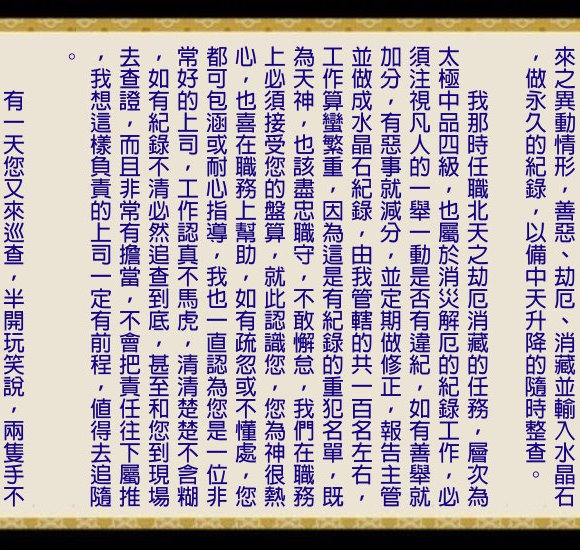 來之異動情形，善惡、劫厄、消藏並輸入水晶石
，做永久的紀錄，以備中天升降的隨時整查。
我那時任職北天之劫厄消藏的任務，層次為
太極中品四級，也屬於消災解厄的紀錄工作，必
須注視凡人的一舉一動是否有違紀，如有善舉就
加分，有惡事就減分，並定期做修正，報告主管
並做成水晶石紀錄，由我管轄的共一百名左右，
工作算蠻繁重，因為這是有紀錄的重犯名單，既
為天神，也該盡忠職守，不敢懈怠，我們在職務
上必須接受您的盤算，就此認識您，您為神很熱
心，也喜在職務上幫助，如有疏忽或不懂處，您
都可包涵或耐心指導，我也一直認為您是一位非
常好的上司，工作認真不馬虎，清清楚楚不含糊
，如有紀錄不清必然追查到底，甚至和您到現場
去查證，而且非常有擔當，不會把責任往下屬推
，我想這樣負責的上司一定有前程，值得去追隨
。
有一天您又來巡查，半開玩笑說，兩隻手不